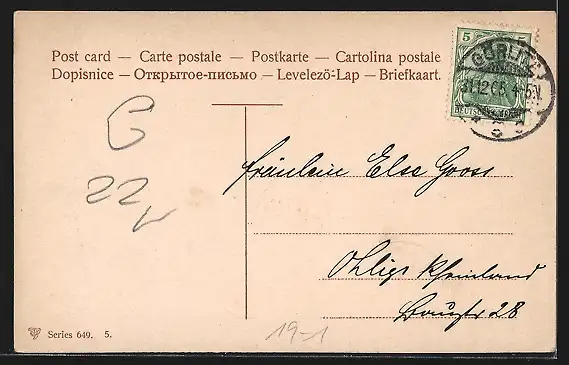 Post card — Carte postale — Postkarte — Cartolina postale
Dopisnice — Открытое-письмо — Levelező-Lap — Briefkaart.
5
GÖRLITZ
31.12.06
G
22
Fräulein Else Gross
Ohligs Rheinland
28
Series 649. 5.
19-1